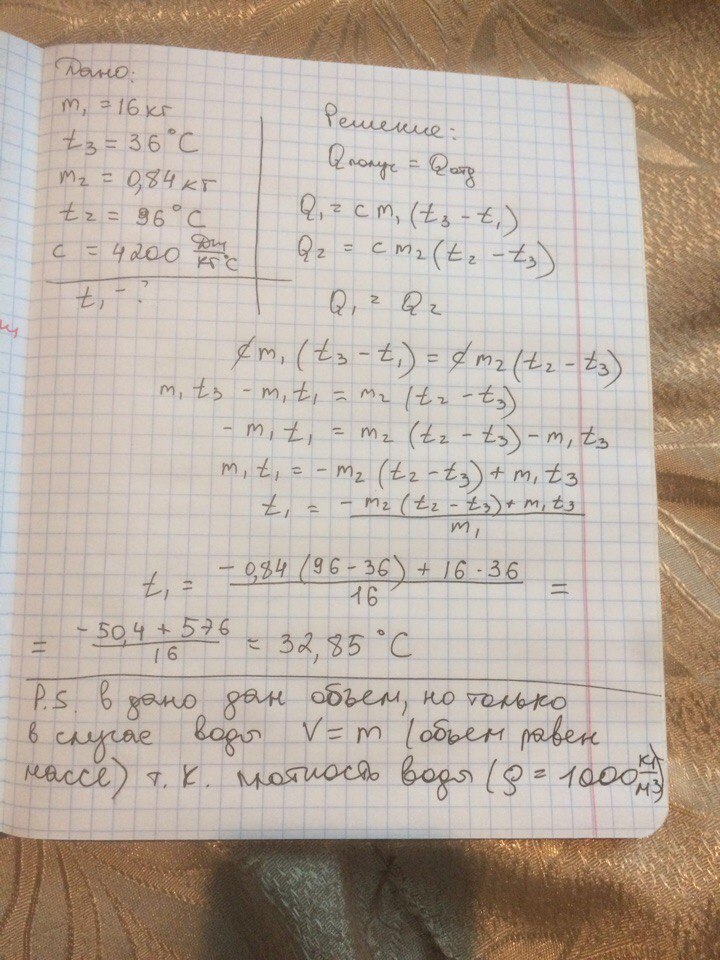 Дано:
m₁ = 16 кг
t₃ = 36°C
m₂ = 0,84 кг
t₂ = 96°C
c = 4200 Дж/кг°C
t₁ - ?
Решение:
Qполуч = Qотд
Q₁ = c m₁ (t₃ - t₁)
Q₂ = c m₂ (t₂ - t₃)
Q₁ = Q₂
c m₁ (t₃ - t₁) = c m₂ (t₂ - t₃)
m₁ t₃ - m₁ t₁ = m₂ (t₂ - t₃)
- m₁ t₁ = m₂ (t₂ - t₃) - m₁ t₃
m₁ t₁ = - m₂ (t₂ - t₃) + m₁ t₃
t₁ = (- m₂ (t₂ - t₃) + m₁ t₃) / m₁
t₁ = (- 0,84 (96 - 36) + 16 · 36) / 16 =
= (- 50,4 + 576) / 16 = 32,85 °C
P.S. в дано дан объем, но только
в случае воды V = m (объем равен
массе) т.к. плотность воды (ρ = 1000 кг/м3)